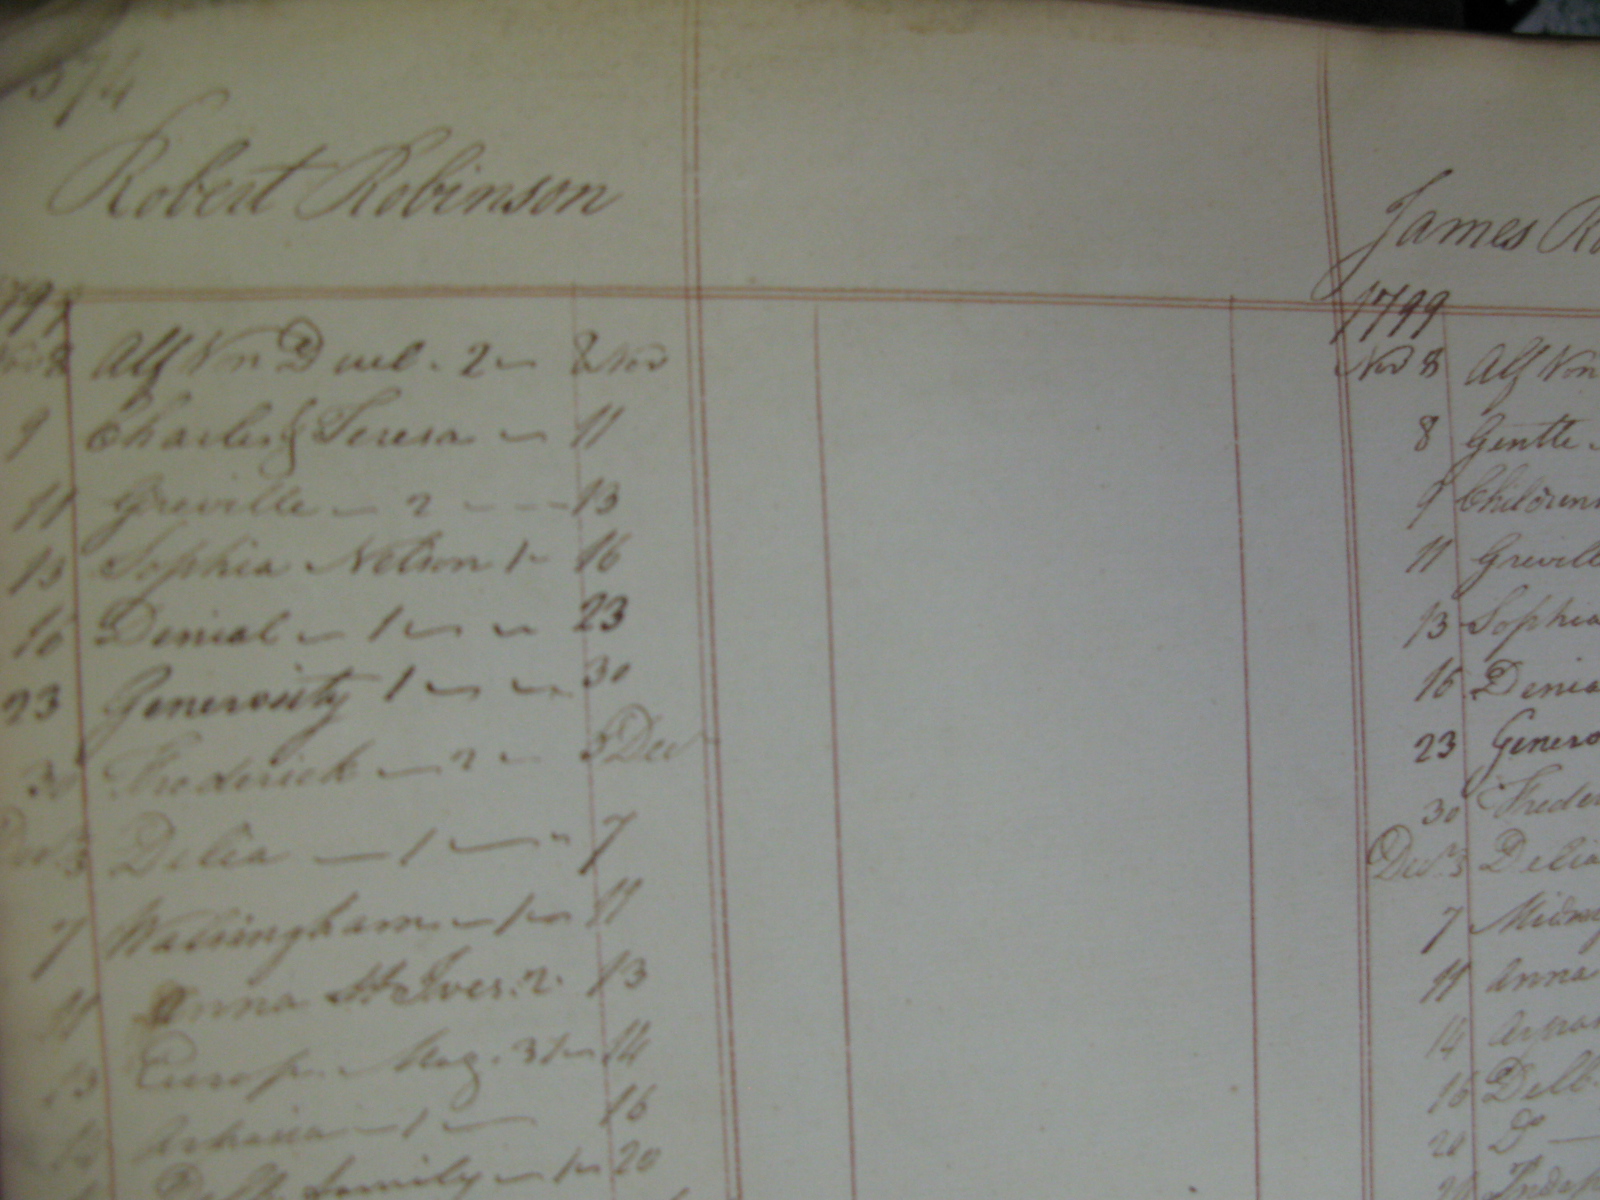 574
Robert Robinson
James Ro
1799
Nov 8 Alf Von Duel . 2 8 Nov
9 Charles & Teresa 11
11 Greville 2 13
13 Sophia Nelson 1 16
16 Denial 1 23
23 Generosity 1 30
30 Frederick 2 5 Dec
Dec 3 Delia 1 7
7 Walsingham 1 11
11 Anna St Ives. 2. 13
13 Europ. Mag. 31 14
14 1 16
family 1 20
1799
Nov 8 Alf Von
8 Gentle
9 Children
11 Grevill
13 Sophia
16 Denia
23 Genero
30 Freder
Decr 3 Delia
7
11 Anna
14
16 Delb
20 Do